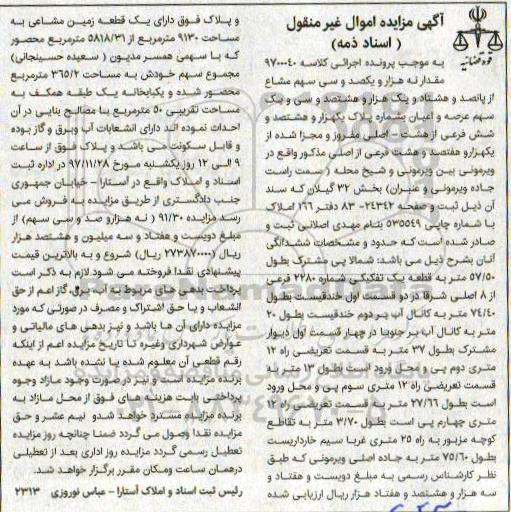 آگهی مزایده اموال غیر منقول
( اسناد ذمه)
قوه قضائیه
به موجب پرونده اجرائی کلاسه ۹۷۰۰۰۴۰
مقدار نه هزار و یکصد و سی سهم مشاع
از پانصد و هشتاد و یک هزار و هشتصد و سی و یک
سهم عرصه و اعیان بشماره پلاک یکهزار و هشتصد و
شش فرعی از هشت - اصلی مفروز و مجزا شده از
یکهزارو هفتصد و هشت فرعی از اصلی مذکور واقع در
ویرمونی بین ویرمونی و شیخ محله ( سمت راست
جاده ویرمونی و عنبران) بخش ۳۲ گیلان که سند
آن ذیل ثبت و صفحه ۲۴۳۴۲- ۸۳ دفتر ۱۶۶ املاک
با شماره چاپی ۵۳۵۵۴۹ بنام مهدی اصلانی ثبت و
صادر شده است که حدود و مشخصات ششدانگی
آنان بشرح ذیل می باشد: شمالا پی مشترک بطول
۵۷/۵۰ متر به قطعه یک تفکیکی شماره ۲۲۸۰ فرعی
از ۸ اصلی شرقا در دو قسمت اول خندقیست بطول
۷۴/۴۰ متر به کانال آب پر دوم خندقیست بطول ۲۰
متر به کانال آب بر جنوبا در چهار قسمت اول دیوار
مشترک بطول ۳۷ متر به قسمت تعریضی راه ۱۲
متری دوم پی و محل ورود است بطول ۱۳ متر به
قسمت تعریضی راه ۱۲ متری سوم پی و محل ورود
است بطول ۲۷/۶۶ متر به قسمت تعریضی راه ۱۲
متری چهارم پی است بطول ۳/۷۰ متر به تقاطع
کوچه مزبور به راه ۲۵ متری غربا سیم خارداریست
بطول ۷۵/۶۰ متر به جاده اصلی ویرمونی که طبق
نظر کارشناس رسمی به مبلغ دویست و هفتاد و
سه هزار و هشتصد و هفتاد هزار ریال ارزیابی شده
و پلاک فوق دارای یک قطعه زمین مشاعی به
مساحت ۹۱۳۰ مترمربع از ۵۸۱۸/۳۱ مترمربع محصور
که با سهمی همسر مدیون ( سعیده حسینجانی)
مجموع سهم خودش به مساحت ۳۶۵/۲ مترمربع
محصور شده و یکبابخانه یک طبقه همکف به
مساحت تقریبی ۵۰ مترمربع با مصالح بنایی در آن
احداث نموده اند دارای انشعابات آب وبرق و گاز بوده
و قابل سکونت می باشد و پلاک فوق از ساعت
۹ الی ۱۲ روز یکشنبه مورخ ۹۷/۱۱/۲۸ در اداره ثبت
اسناد و املاک واقع در آستارا - خیابان جمهوری
جنب دادگستری از طریق مزایده به فروش می
رسد مزایده ۹۱/۳۰ ( نه هزارو صد و سی سهم) از
مبلغ دویست و هفتاد و سه میلیون و هشتصد هزار
ریال (۲۷۳۸۷۰۰۰۰ ریال) شروع و به بالاترین قیمت
پیشنهادی نقدا فروخته می شود لازم به ذکر است
پرداخت بدهی های مربوط به آب، برق، گاز اعم از حق
انشعاب و یا حق اشتراک و مصرف در صورتی که مورد
مزایده دارای آن ها باشد و نیز بدهی های مالیاتی و
عوارض شهرداری وغیره تا تاریخ مزایده اعم از اینکه
رقم قطعی آن معلوم شده یا نشده باشد به عهده
برنده مزایده است و نیز در صورت وجود مازاد وجوه
پرداختی بابت هزینه های فوق از محل مازاد به
برنده مزایده مسترد خواهد شدو نیم عشر و حق
مزایده نقدا وصول می گردد ضمنا چنانچه روز مزایده
تعطیل رسمی گردد مزایده روز اداری بعد از تعطیلی
درهمان ساعت ومکان مقرر برگزار خواهد شد.
رئیس ثبت اسناد و املاک آستارا - عباس نوروزی ۲۳۱۳